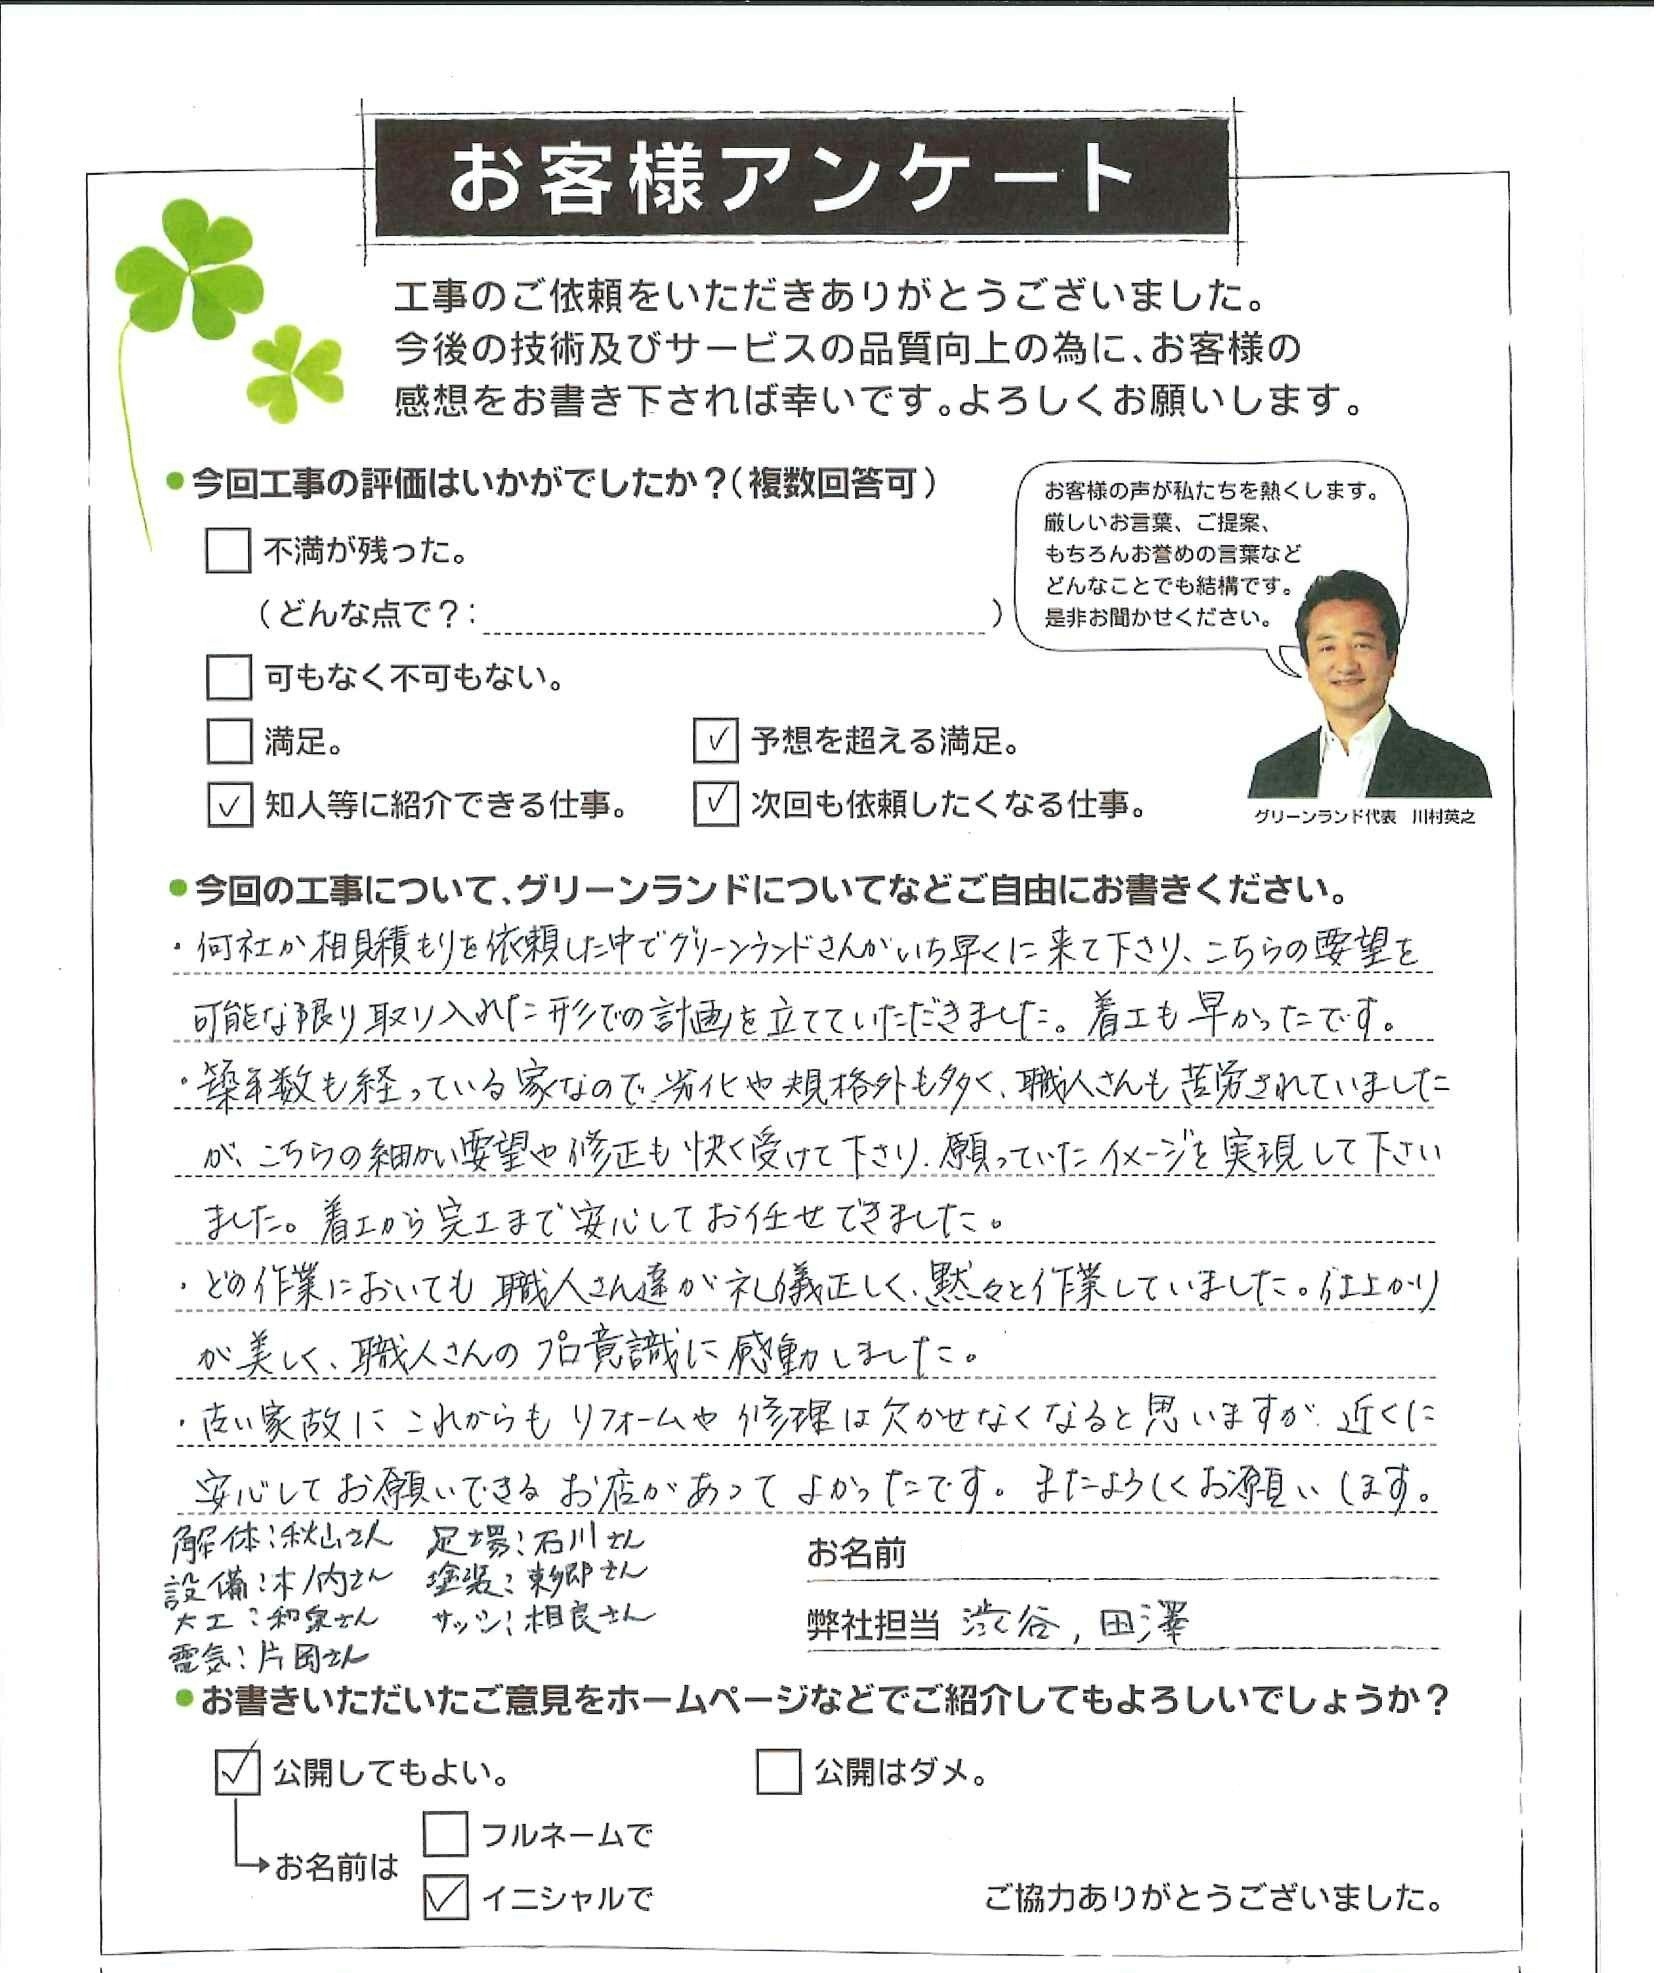 お客様アンケート
工事のご依頼をいただきありがとうございました。
今後の技術及びサービスの品質向上の為に、お客様の
感想をお書き下されば幸いです。よろしくお願いします。
●今回工事の評価はいかがでしたか？（複数回答可）
お客様の声が私たちを熱くします。
厳しいお言葉、ご提案、
もちろんお誉めの言葉など
どんなことでも結構です。
是非お聞かせください。
不満が残った。
（どんな点で？： ）
可もなく不可もない。
満足。 ✓ 予想を超える満足。
✓ 知人等に紹介できる仕事。 ✓ 次回も依頼したくなる仕事。
グリーンランド代表 川村英之
●今回の工事について、グリーンランドについてなどご自由にお書きください。
・何社か相見積もりを依頼した中でグリーンランドさんがいち早くに来て下さり、こちらの要望を
可能な限り取り入れた形での計画を立てていただきました。着工も早かったです。
・築年数も経っている家なので、劣化や規格外も多く、職人さんも苦労されていました
が、こちらの細かい要望や修正も快く受けて下さり、願っていたイメージを実現して下さい
ました。着工から完工まで安心してお任せできました。
・どの作業においても職人さん達が礼儀正しく、黙々と作業していました。仕上がり
が美しく、職人さんのプロ意識に感動しました。
・古い家故にこれからもリフォームや修理は欠かせなくなると思いますが、近くに
安心してお願いできるお店があってよかったです。またよろしくお願いします。
解体：秋山さん 足場：石川さん
設備：木ノ内さん 塗装：東郷さん
大工：和泉さん サッシ：相良さん
電気：片岡さん
お名前
弊社担当 渋谷，田澤
●お書きいただいたご意見をホームページなどでご紹介してもよろしいでしょうか？
✓ 公開してもよい。 公開はダメ。
フルネームで
→お名前は
✓ イニシャルで
ご協力ありがとうございました。